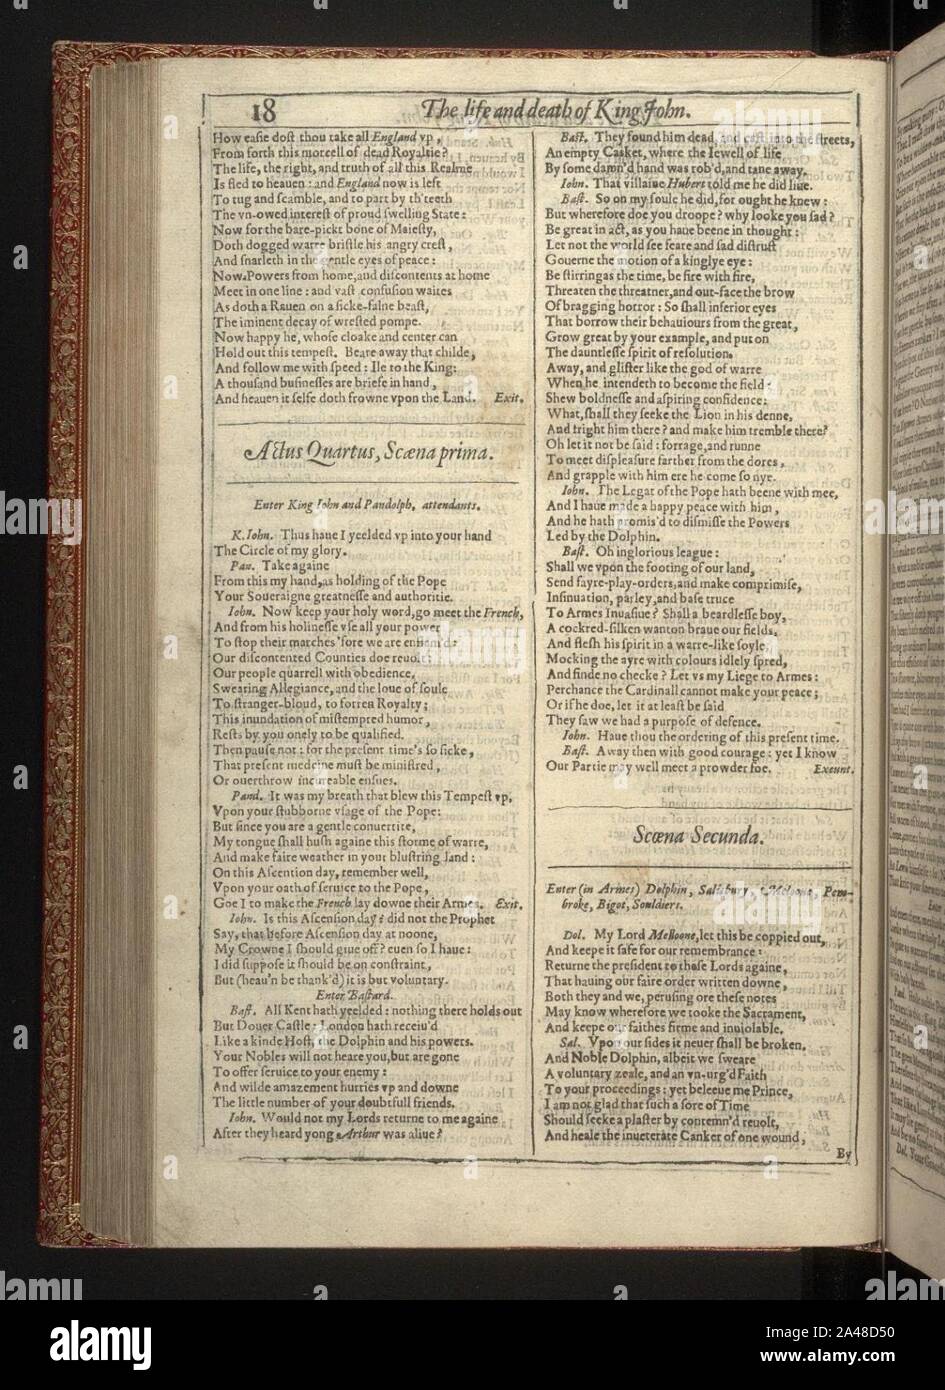 18
The life and death of King John.
How easie dost thou take all England vp,
From forth this morcell of dead Royaltie?
The life, the right, and truth of all this Realme
Is fled to heauen: and England now is left
To tug and scamble, and to part by th'teeth
The vn-owed interest of proud swelling State:
Now for the bare-pickt bone of Maiesty,
Doth dogged warre bristle his angry crest,
And snarleth in the gentle eyes of peace:
Now Powers from home, and discontents at home
Meet in one line: and vast confusion waites
As doth a Rauen on a sicke-falne beast,
The iminent decay of wrested pompe.
Now happy he, whose cloake and center can
Hold out this tempest. Beare away that childe,
And follow me with speed: Ile to the King:
A thousand businesses are briefe in hand,
And heauen it selfe doth frowne vpon the Land. Exit.
Actus Quartus, Scæna prima.
Enter King Iohn and Pandolph, attendants.
K.Iohn. Thus haue I yeelded vp into your hand
The Circle of my glory.
Pan. Take againe
From this my hand, as holding of the Pope
Your Soueraigne greatnesse and authoritie.
Iohn. Now keep your holy word, go meet the French,
And from his holinesse vse all your power
To stop their marches 'fore we are enflam'd:
Our discontented Counties doe reuolt:
Our people quarrell with obedience,
Swearing Allegiance, and the loue of soule
To stranger-bloud, to forren Royalty;
This inundation of mistempred humor,
Rests by you onely to be qualified.
Then pause not: for the present time's so sicke,
That present medcine must be ministred,
Or ouerthrow incureable ensues.
Pand. It was my breath that blew this Tempest vp,
Vpon your stubborne vsage of the Pope:
But since you are a gentle conuertite,
My tongue shall hush againe this storme of warre,
And make faire weather in your blustring land:
On this Ascention day, remember well,
Vpon your oath of seruice to the Pope,
Goe I to make the French lay downe their Armes. Exit.
Iohn. Is this Ascension day? did not the Prophet
Say, that before Ascension day at noone,
My Crowne I should giue off? euen so I haue:
I did suppose it should be on constraint,
But (heau'n be thank'd) it is but voluntary.
Enter Bastard.
Bast. All Kent hath yeelded: nothing there holds out
But Douer Castle: London hath receiu'd
Like a kinde Host, the Dolphin and his powers.
Your Nobles will not heare you, but are gone
To offer seruice to your enemy:
And wilde amazement hurries vp and downe
The little number of your doubtfull friends.
Iohn. Would not my Lords returne to me againe
After they heard yong Arthur was aliue?
Bast. They found him dead, and cast into the streets,
An empty Casket, where the Iewell of life
By some damn'd hand was rob'd, and tane away.
Iohn. That villaine Hubert told me he did liue.
Bast. So on my soule he did, for ought he knew:
But wherefore doe you droope? why looke you sad?
Be great in act, as you haue beene in thought:
Let not the world see feare and sad distrust
Gouerne the motion of a kinglye eye:
Be stirring as the time, be fire with fire,
Threaten the threatner, and out-face the brow
Of bragging horror: So shall inferior eyes
That borrow their behauiours from the great,
Grow great by your example, and put on
The dauntlesse spirit of resolution.
Away, and glister like the god of warre
When he intendeth to become the field:
Shew boldnesse and aspiring confidence:
What, shall they seeke the Lion in his denne,
And fright him there? and make him tremble there?
Oh let it not be said: forrage, and runne
To meet displeasure farther from the dores,
And grapple with him ere he come so nye.
Iohn. The Legat of the Pope hath beene with mee,
And I haue made a happy peace with him,
And he hath promis'd to dismisse the Powers
Led by the Dolphin.
Bast. Oh inglorious league:
Shall we vpon the footing of our land,
Send fayre-play-orders, and make comprimise,
Insinuation, parley, and base truce
To Armes Inuasiue? Shall a beardlesse boy,
A cockred-silken wanton braue our fields,
And flesh his spirit in a warre-like soyle,
Mocking the ayre with colours idlely spred,
And finde no checke? Let vs my Liege to Armes:
Perchance the Cardinall cannot make your peace;
Or if he doe, let it at least be said
They saw we had a purpose of defence.
Iohn. Haue thou the ordering of this present time.
Bast. Away then with good courage: yet I know
Our Partie may well meet a prowder foe. Exeunt.
Scæna Secunda.
Enter (in Armes) Dolphin, Salisbury, Meloone, Pem-
broke, Bigot, Souldiers.
Dol. My Lord Melloone, let this be coppied out,
And keepe it safe for our remembrance:
Returne the president to these Lords againe,
That hauing our faire order written downe,
Both they and we, perusing ore these notes
May know wherefore we tooke the Sacrament,
And keepe our faithes firme and inuiolable.
Sal. Vpon our sides it neuer shall be broken.
And Noble Dolphin, albeit we sweare
A voluntary zeale, and an vn-urg'd Faith
To your proceedings: yet beleeue me Prince,
I am not glad that such a sore of Time
Should seeke a plaster by contemn'd reuolt,
And heale the inueterate Canker of one wound,
By
alamy
Image ID: 2A48D50
www.alamy.com